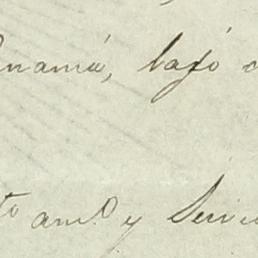 anamá, bajó
to am.o y Servi